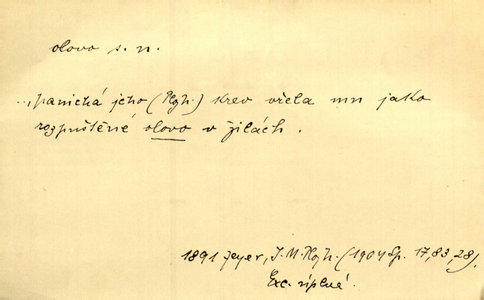 olovo s. n.
„panická jeho (Hgh.) krev vřela mu jako
rozpuštěné olovo v žilách.
1891 Zeyer, J. M. Hgh. (1904 Sp. 17, 83, 28).
Exc. úplné.